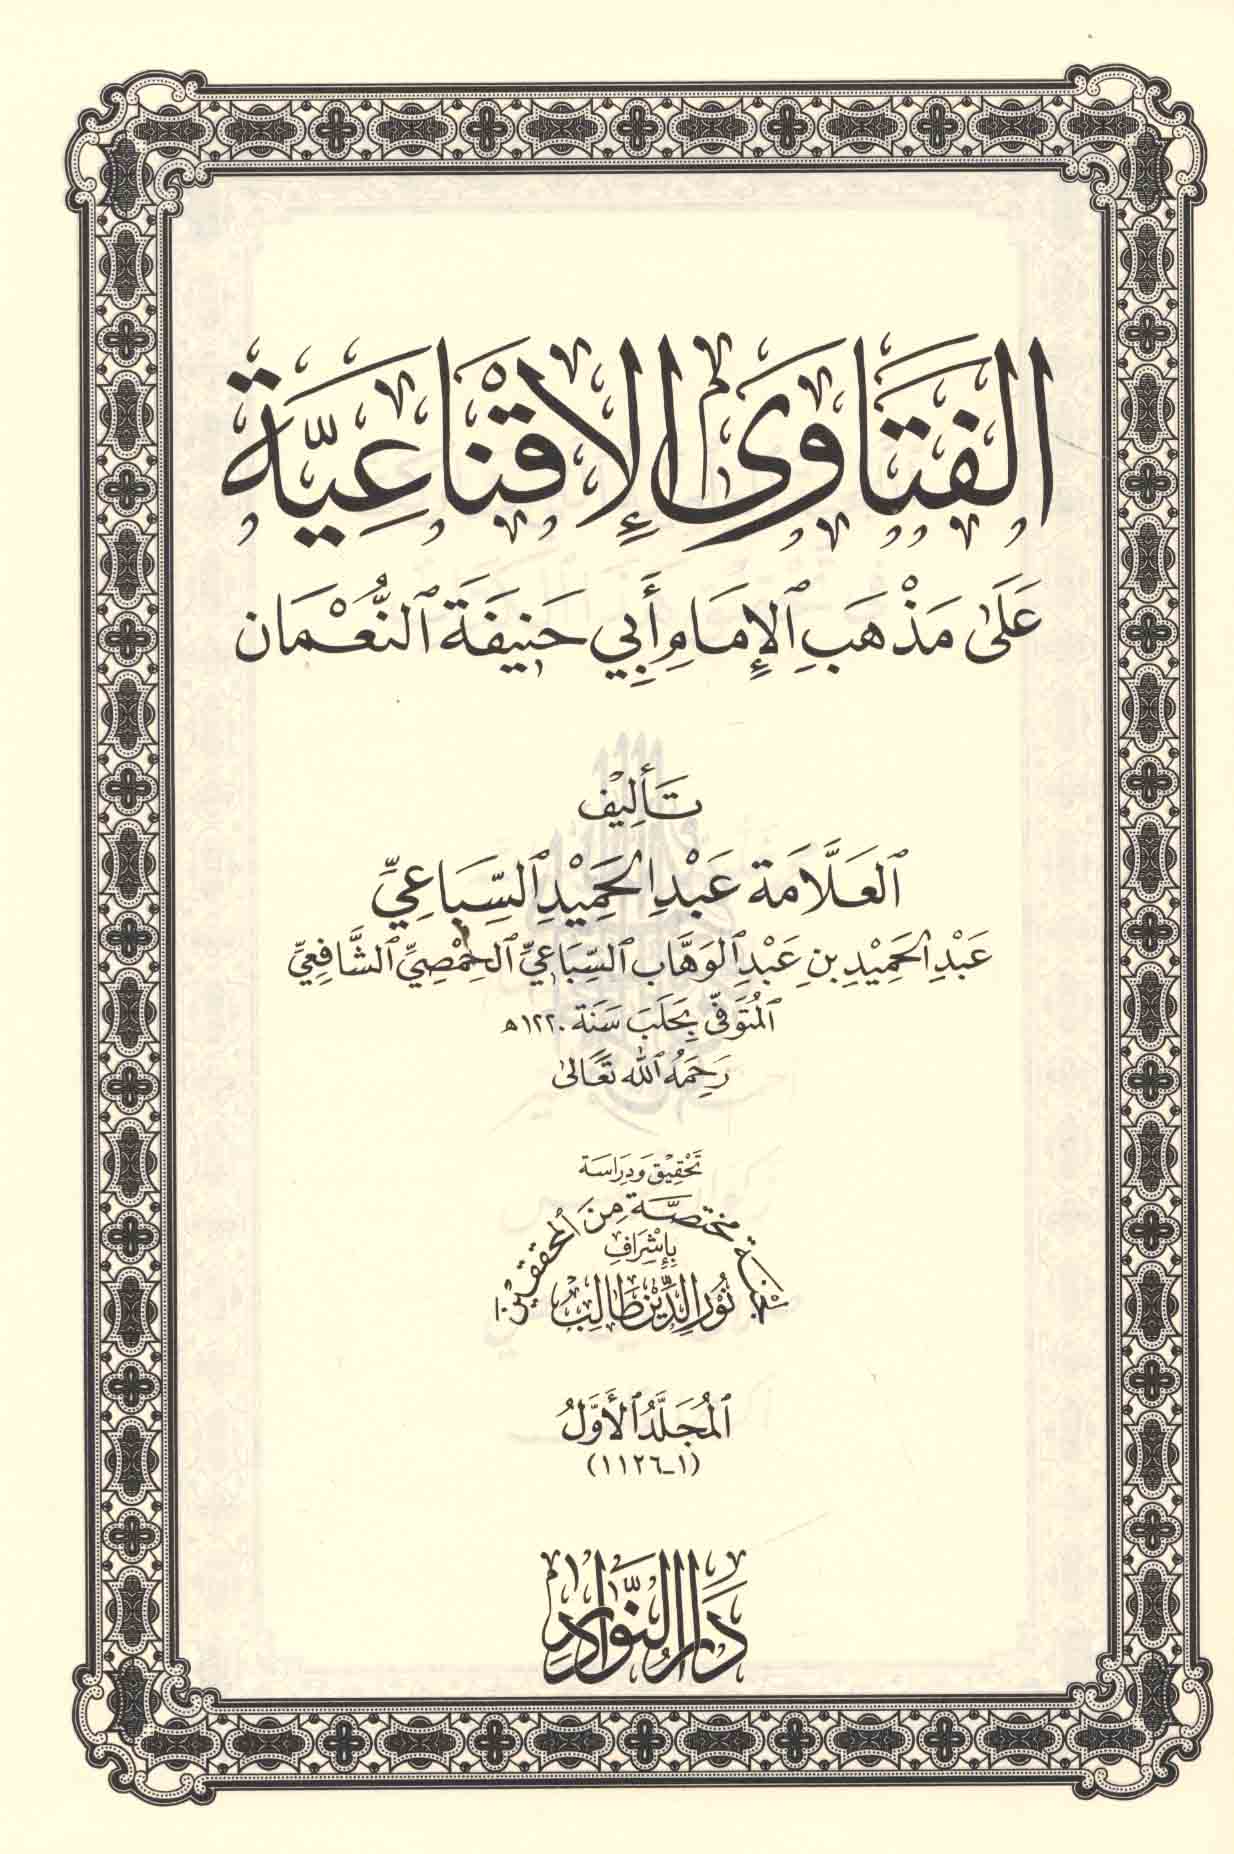 الفَتَاوَى الإِقْنَاعِيَّة
عَلَى مَذْهَبِ الإِمَامِ أَبِي حَنِيفَة النُّعْمَان
تَأْلِيْف
العَلَّامَة عَبْدِ الحَمِيْدِ السِّبَاعِيِّ
عَبْدِ الحَمِيْدِ بنِ عَبْدِ الوَهَّاب السِّبَاعِيِّ الحِمْصِيِّ الشَّافِعِيِّ
المُتَوَفّى بِحَلَبَ سَنَة ١٢٢٠هـ
رَحِمَهُ الله تَعَالى
تَحْقِيْق وَدِرَاسَة
لجنة مختصَّة مِنَ المحققين
بإِشْرَاف
نُوْر الدِّيْن طَالِب
المُجَلَّدُ الأَوَّلُ
(١-١١٢٦)
دَارُ النَّوَادِر